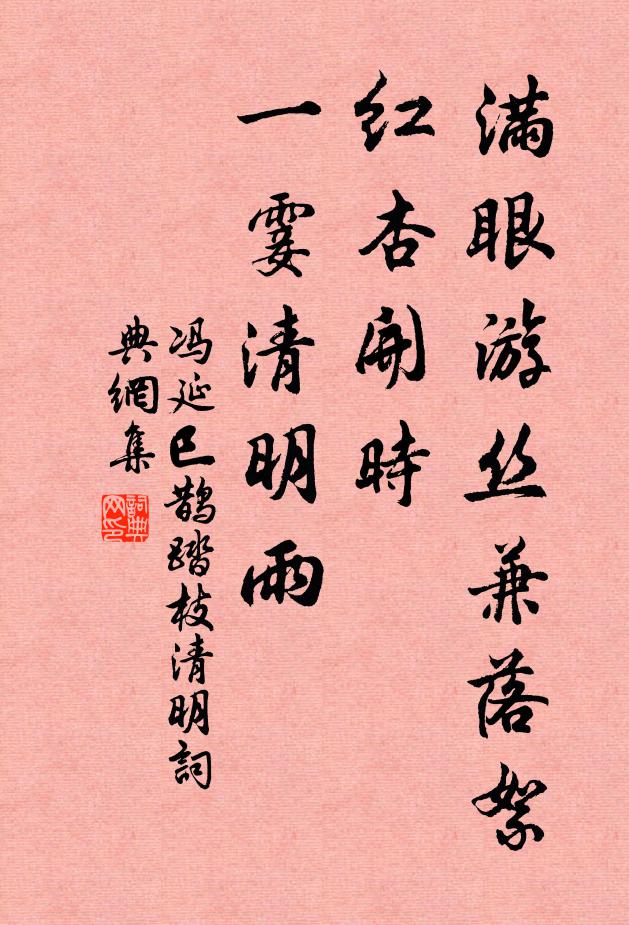 满眼游丝兼落絮
红杏開時
一霎清明雨
冯延巳鹊踏枝清明詞
典網集
詞典网印